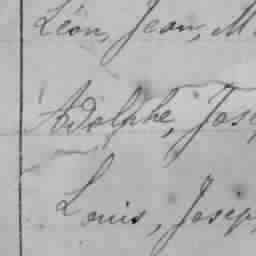 Léon, Jean, M
Adolphe, Jose
Louis, Josep